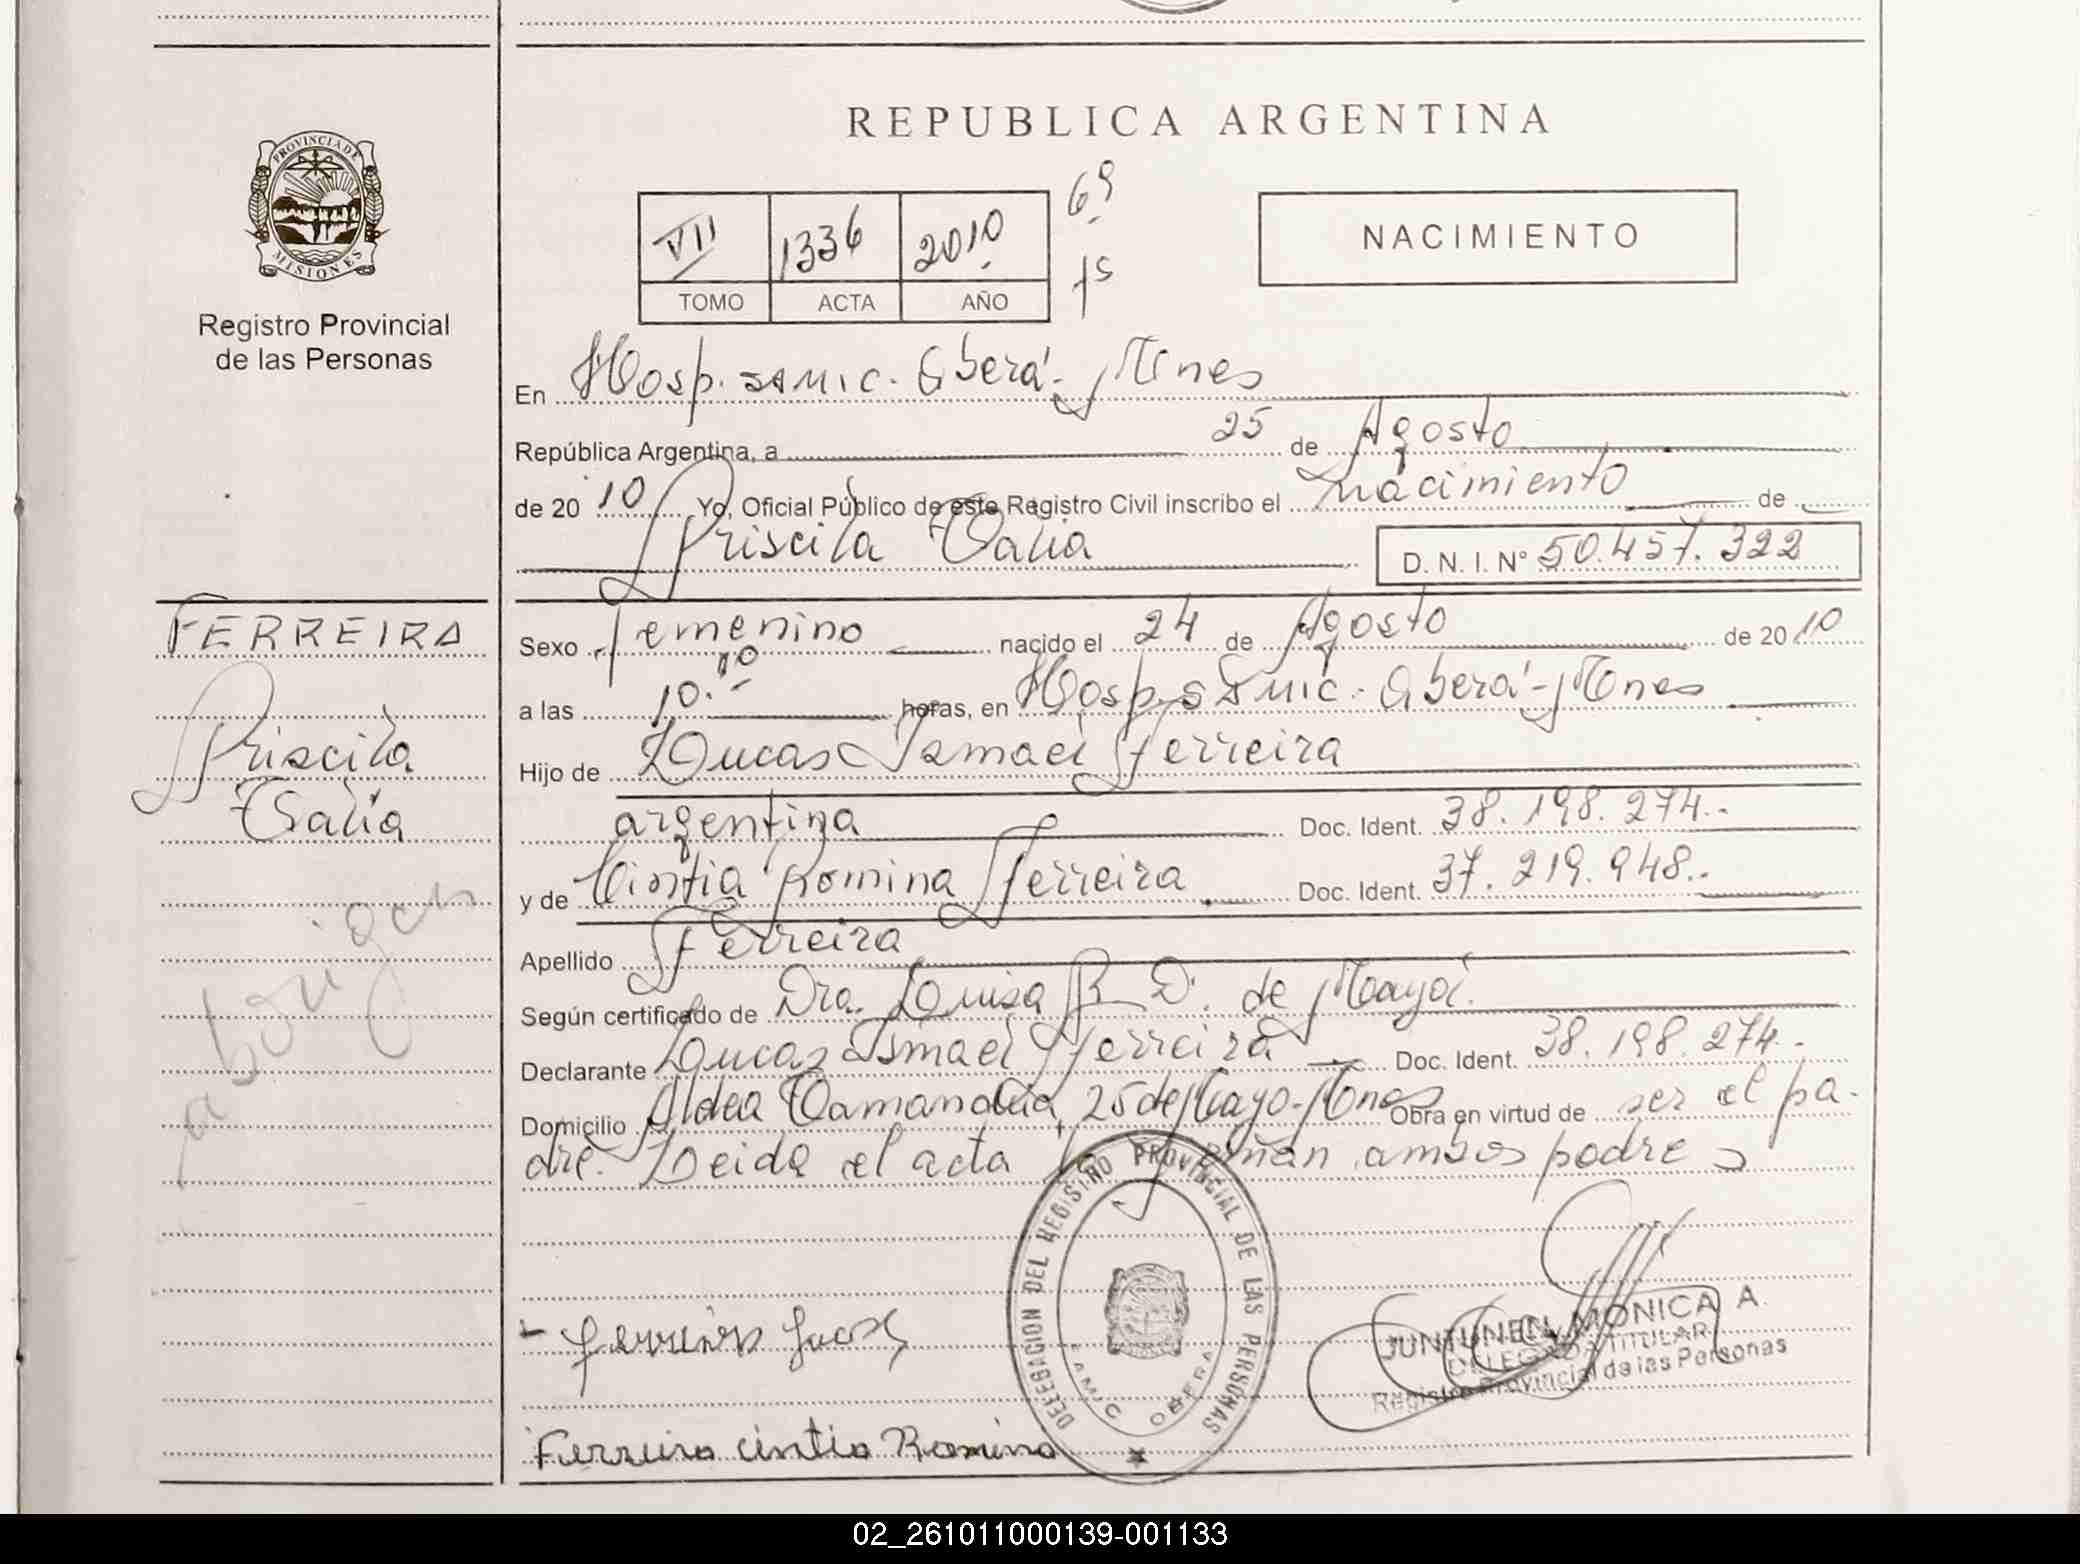 REPUBLICA ARGENTINA
PROVINCIA DE
MISIONES
Registro Provincial
de las Personas
VII 1336 2010
TOMO ACTA AÑO
NACIMIENTO
En Hosp. SAMIC. Oberá - Mnes
República Argentina, a 25 de Agosto
de 2010 Yo, Oficial Público de este Registro Civil inscribo el nacimiento de
Priscila Talia D. N. I. N° 50.457.322
FERREIRA
Priscila
Talia
aborigen
Sexo femenino nacido el 24 de Agosto de 2010
a las 10.10 horas, en Hosp. SAMIC. Oberá - Mnes
Hijo de Lucas Ismael Ferreira
argentina Doc. Ident. 38.198.274.-
y de Cintia Romina Ferreira Doc. Ident. 37.219.948.-
Apellido Ferreira
Según certificado de Dra. Luisa R. D. de
Declarante Lucas Ismael Ferreira Doc. Ident. 38.198.274.-
Domicilio Aldea Tamandua, 25 de Mayo - Mnes Obra en virtud de ser el pa-
dre. Leida el acta la firman ambos padres
DELEGACION DEL REGISTRO PROVINCIAL DE LAS PERSONAS
SAMIC OBERA
JUNTUNEN, MONICA A.
DELEGADA TITULAR
Registro Provincial de las Personas
Ferreira Cintia Romina
02_261011000139-001133